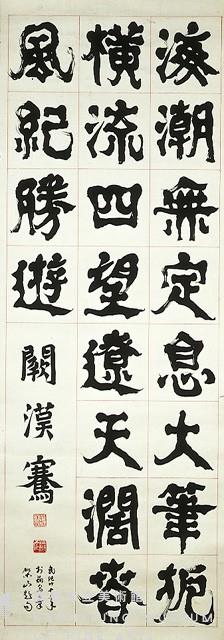 海潮無定息大筆扼
橫流四望遼天濶春
風紀勝遊
闕漢騫